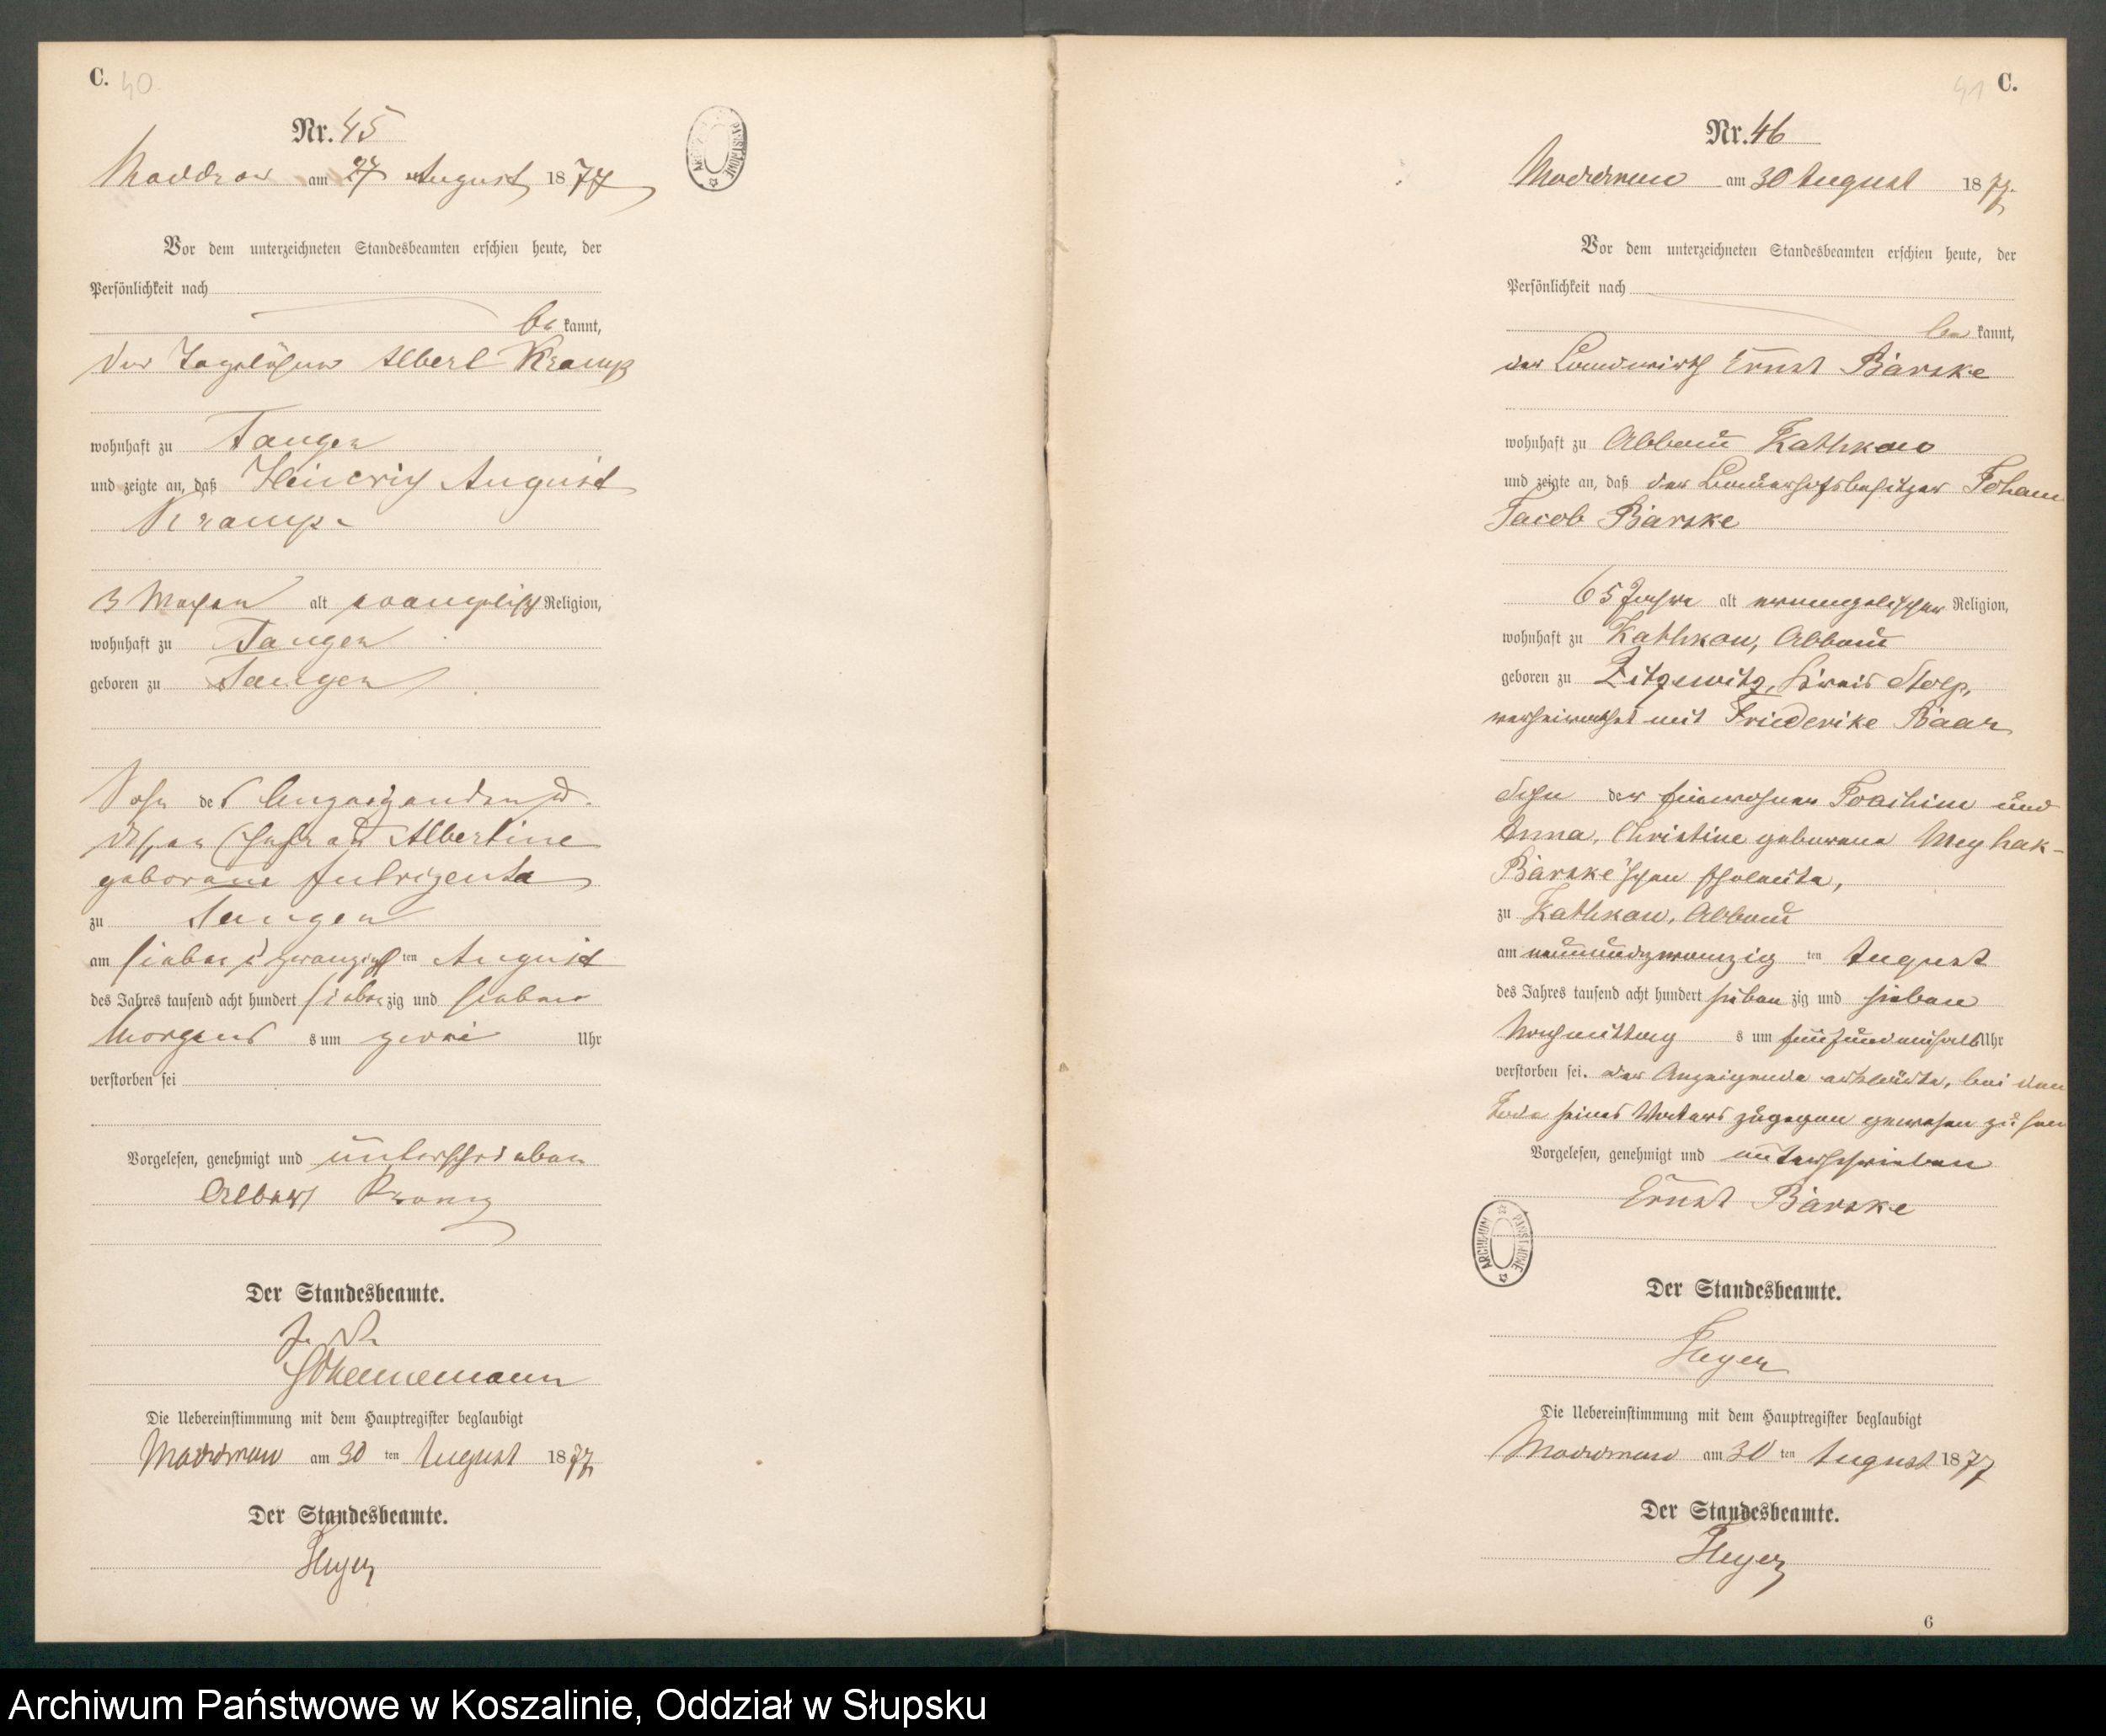 C. 40
Nr. 45
Moddrow am 27 August 1877
Vor dem unterzeichneten Standesbeamten erschien heute, der
Persönlichkeit nach
be kannt,
der Tagelöhner Albert Kramp
wohnhaft zu Tangen
und zeigte an, daß Heinrich August
Kramp
3 Wochen alt evangelisch Religion,
wohnhaft zu Tangen
geboren zu Tangen
Sohn des Anzeigenden u.
dessen Ehefrau Albertine
geborene
zu Tangen
am sieben u zwanzigsten August
des Jahres tausend acht hundert siebenzig und sieben
Morgens s um zwei Uhr
verstorben sei
Vorgelesen, genehmigt und unterschrieben
Albert Kramp
Der Standesbeamte.
Die Uebereinstimmung mit dem Hauptregister beglaubigt
Moddrow am 30 ten August 1877
Der Standesbeamte.
Heyer
ARCHIWUM PAŃSTWOWE
41 C.
Nr. 46
Moddrow am 30 August 1877.
Vor dem unterzeichneten Standesbeamten erschien heute, der
Persönlichkeit nach
be kannt,
der Landwirth Ernst Bärske
wohnhaft zu Abbau Kathkow
und zeigte an, daß der Bauerhofsbesitzer Johann
Jacob Bärske
65 Jahre alt evangelischer Religion,
wohnhaft zu Kathkow, Abbau
geboren zu Zitzewitz, Kreis Stolp,
verheirathet mit Friederike Baar
Sohn der Einwohner Joachim und
Anna, Christine geborene Meyhak-
Bärske'schen Eheleute,
zu Kathkow, Abbau
am neunundzwanzig ten August
des Jahres tausend acht hundert sieben zig und sieben
Nachmittag s um fünfundeinhalb Uhr
verstorben sei. der Anzeigende erklärte, bei dem
Tode seines Vaters zugegen gewesen zu sein
Vorgelesen, genehmigt und unterschrieben
Ernst Bärske
ARCHIWUM PAŃSTWOWE
Der Standesbeamte.
Heyer
Die Uebereinstimmung mit dem Hauptregister beglaubigt
Moddrow am 30 ten August 1877
Der Standesbeamte.
Heyer
6
Archiwum Państwowe w Koszalinie, Oddział w Słupsku